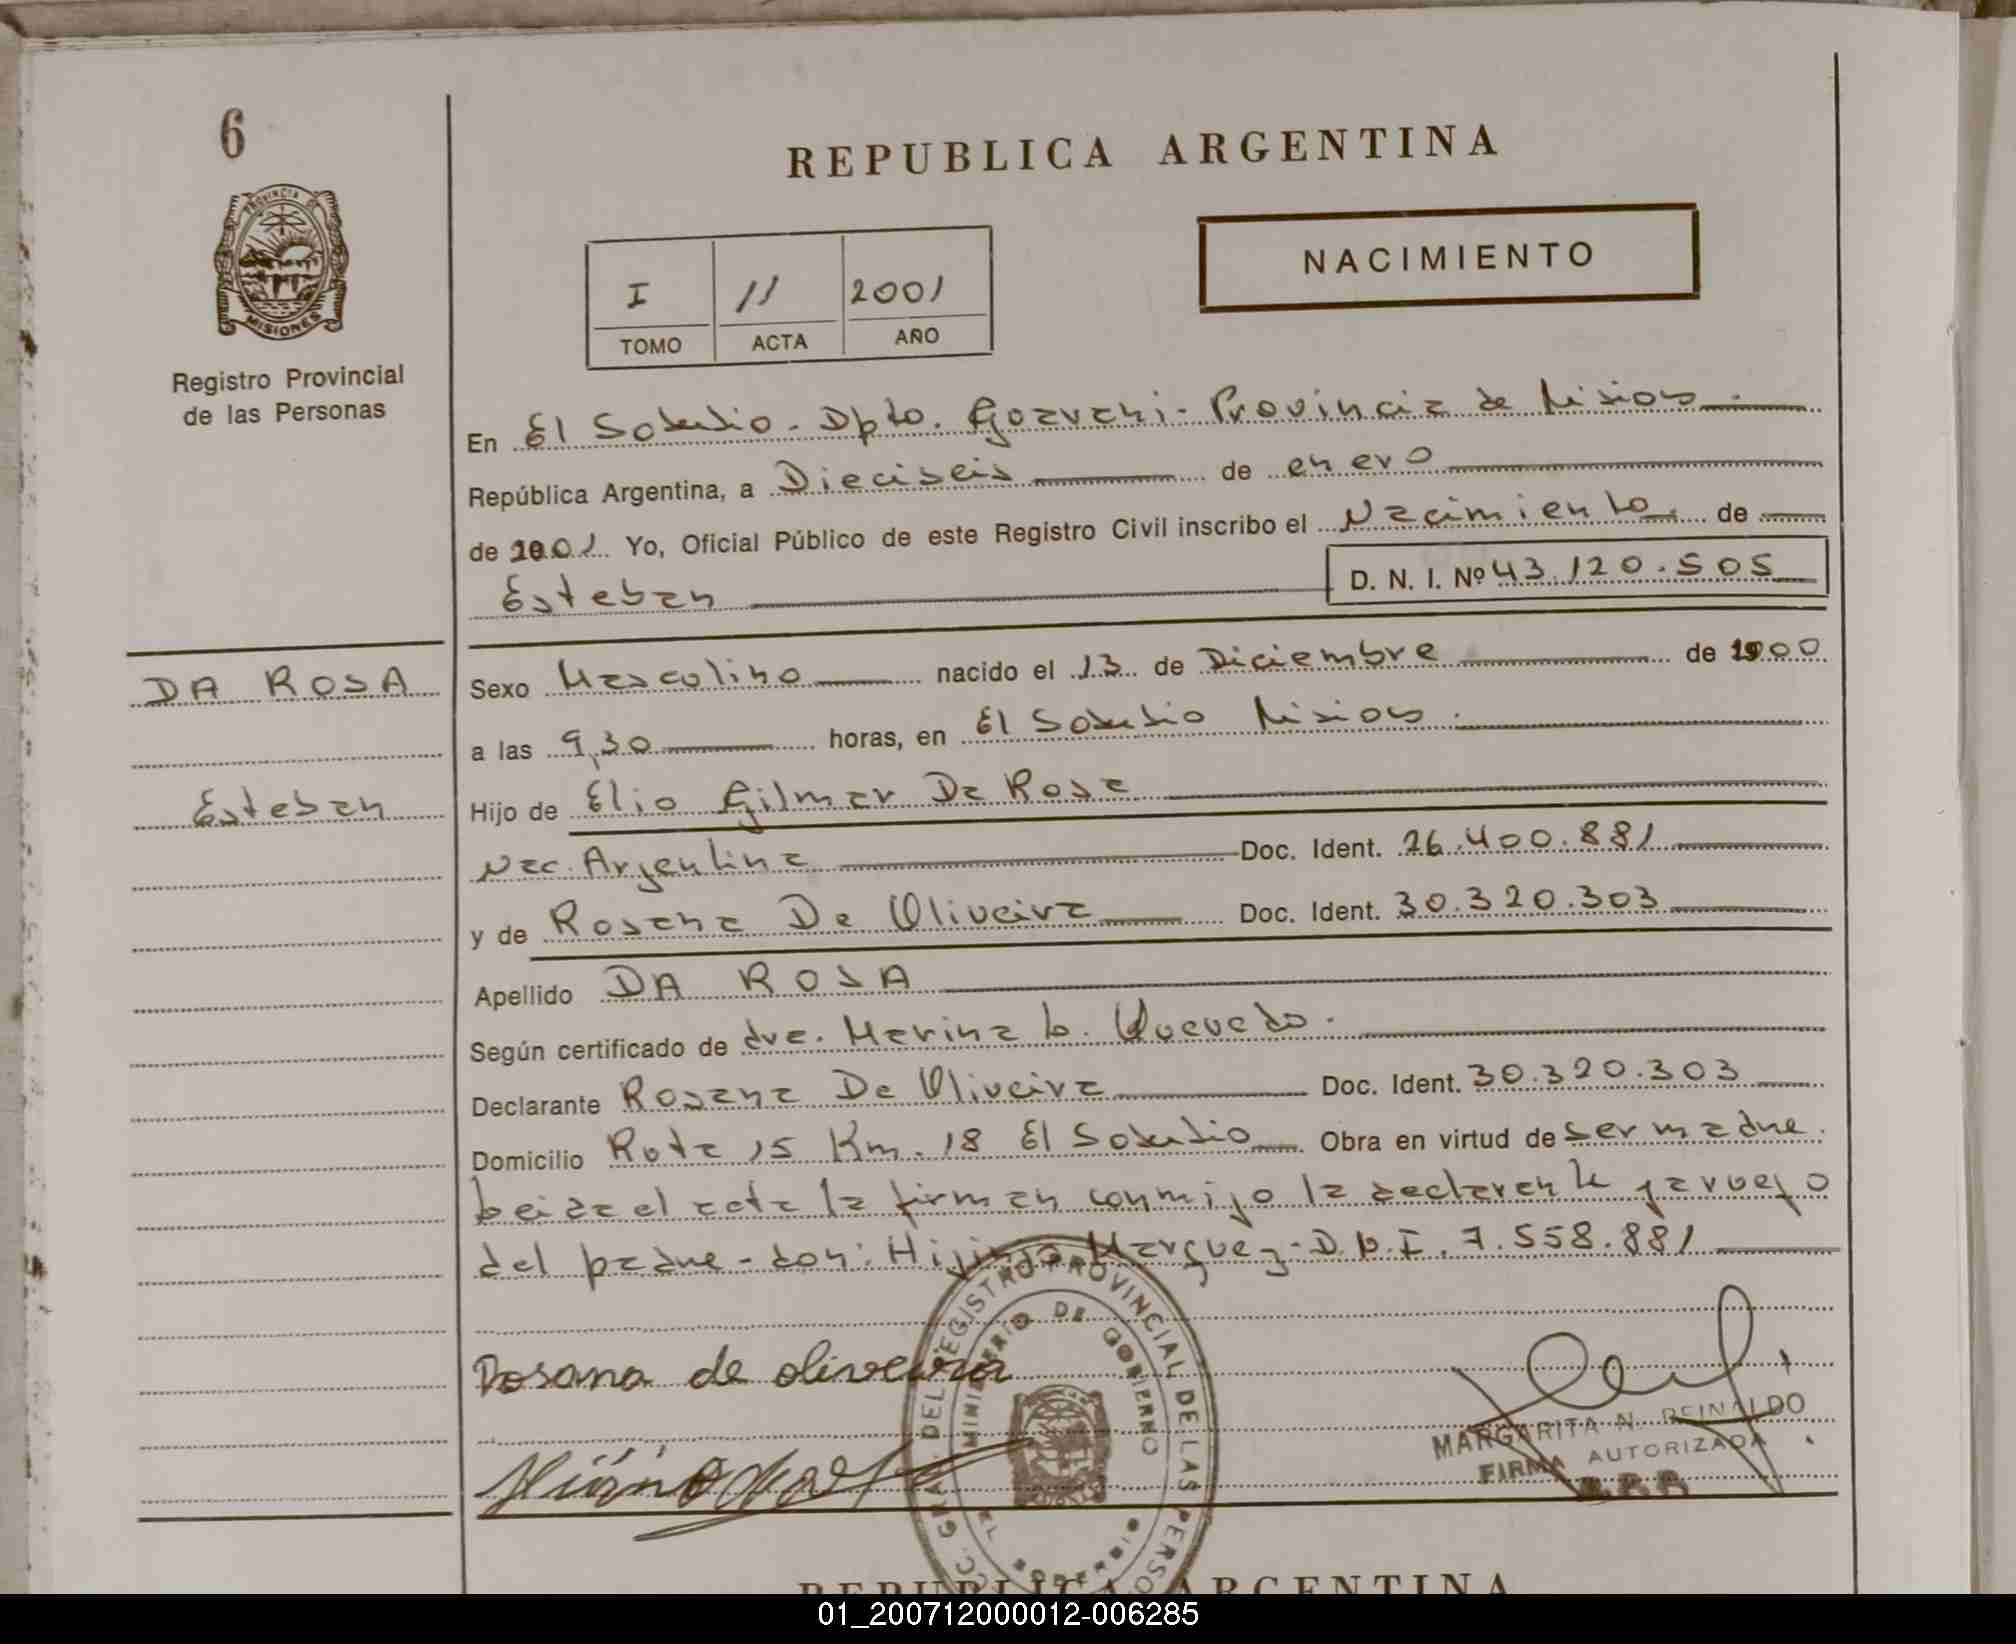 6
REPUBLICA ARGENTINA
PROVINCIA DE
MISIONES
Registro Provincial
de las Personas
I 11 2001
TOMO ACTA AÑO
NACIMIENTO
En El Soberbio - Dpto. Guarani - Provincia de Misiones
República Argentina, a Dieciseis de enero
de 2001 Yo, Oficial Público de este Registro Civil inscribo el Nacimiento de
Esteban D. N. I. Nº 43.120.505
DA ROSA
Esteban
Sexo Masculino nacido el 13 de Diciembre de 2000
a las 9,30 horas, en El Soberbio Misiones
Hijo de Elio Gilmar Da Rosa
Nac. Argentina Doc. Ident. 26.400.881
y de Rosana De Oliveira Doc. Ident. 30.320.303
Apellido DA ROSA
Según certificado de dra. Marina Quevedo.
Declarante Rosana De Oliveira Doc. Ident. 30.320.303
Domicilio Ruta 15 Km. 18 El Soberbio Obra en virtud de ser madre.
leida el acta la firman conmigo la declarante y a ruego
del padre - don: Higinio Marquez - D.N.I. 7.558.881
Rosana de oliveira
REGISTRO PROVINCIAL DE LAS PERSO
MINISTERIO DE GOBIERNO
MARGARITA N. REINALDO
FIRMA AUTORIZADA
REPUBLICA ARGENTINA
01_200712000012-006285